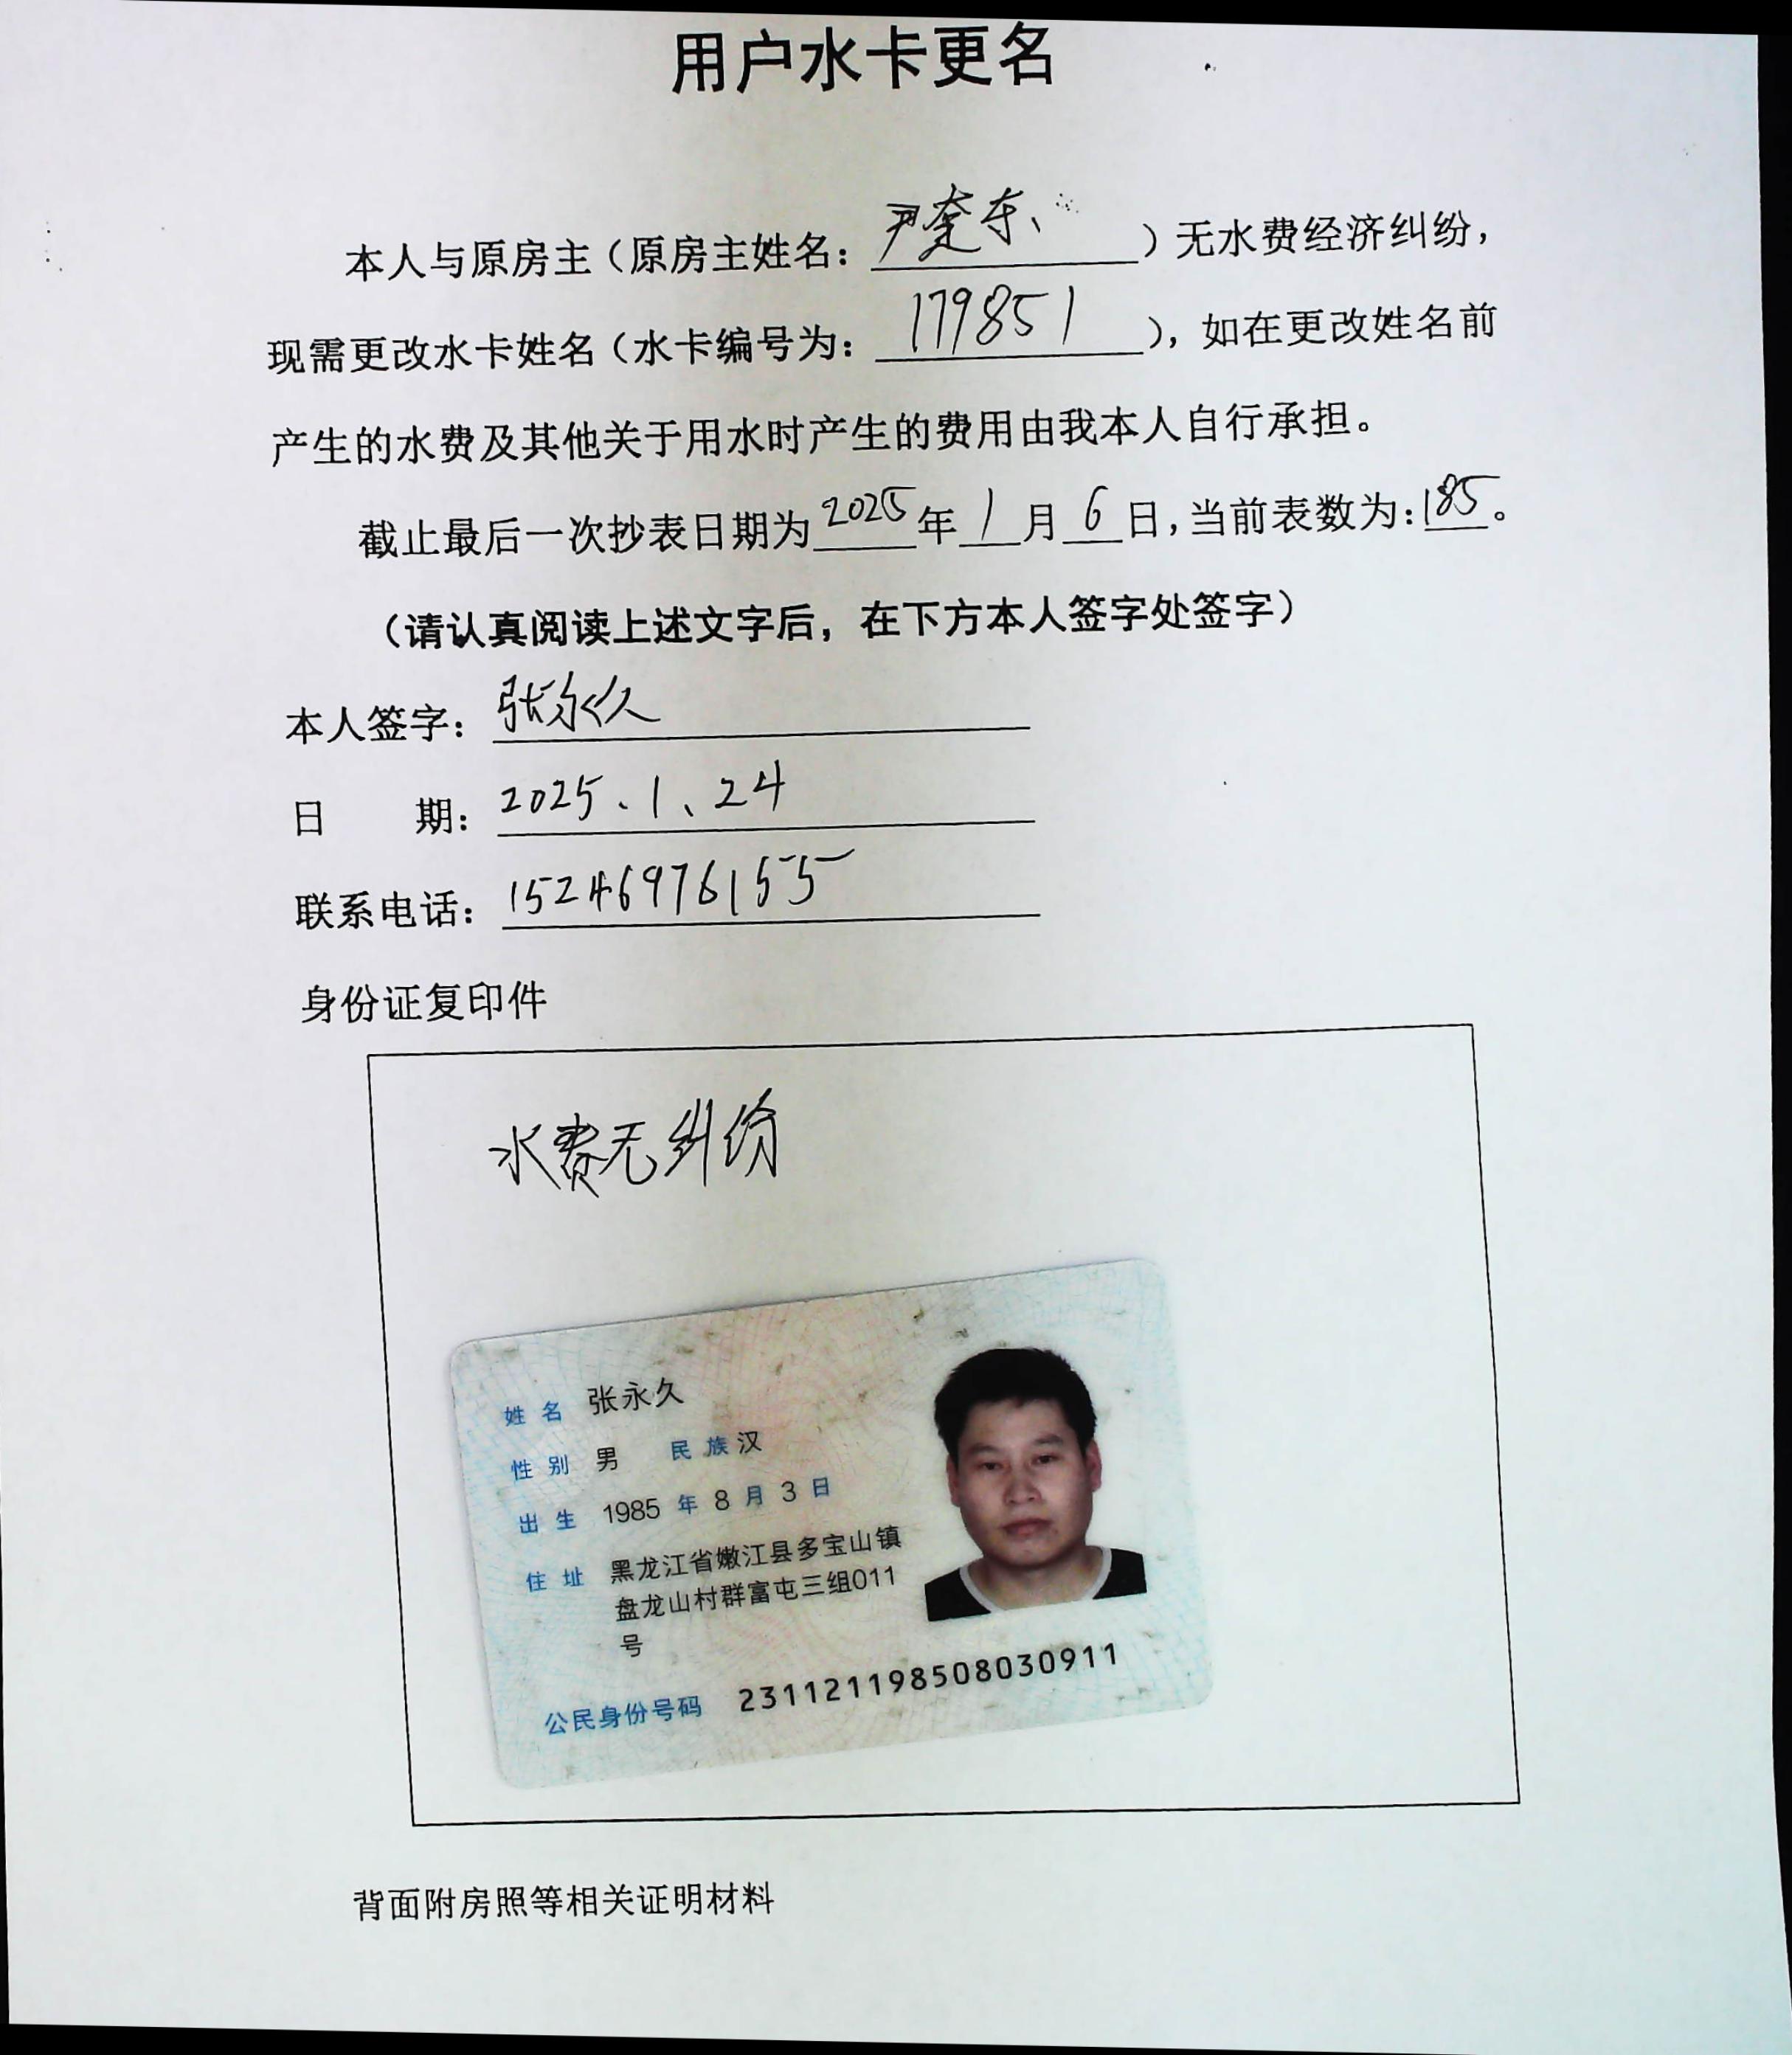 用户水卡更名
本人与原房主（原房主姓名：尹奎东、）无水费经济纠纷，
现需更改水卡姓名（水卡编号为：179851），如在更改姓名前
产生的水费及其他关于用水时产生的费用由我本人自行承担。
截止最后一次抄表日期为2025年1月6日,当前表数为:185。
（请认真阅读上述文字后，在下方本人签字处签字）
本人签字：张永久
日 期：2025、1、24
联系电话：15246976155
身份证复印件
水费无纠纷
姓名 张永久
性别 男 民族 汉
出生 1985 年 8 月 3 日
住址 黑龙江省嫩江县多宝山镇
盘龙山村群富屯三组011
号
公民身份号码 231121198508030911
背面附房照等相关证明材料